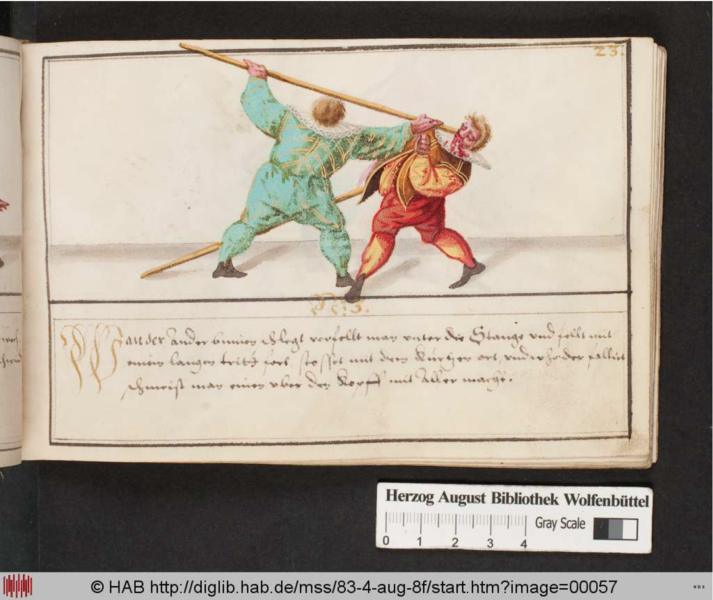 23.
N: 5.
Wan der ander binnen schlegt verfellt man unter die Stange und fellt mit
einen langen tritt fort stosset mit dem kurtzen ort, und
schmeist man einen uber den Kopff mit aller macht.
Herzog August Bibliothek Wolfenbüttel
Gray Scale
0 1 2 3 4
© HAB http://diglib.hab.de/mss/83-4-aug-8f/start.htm?image=00057